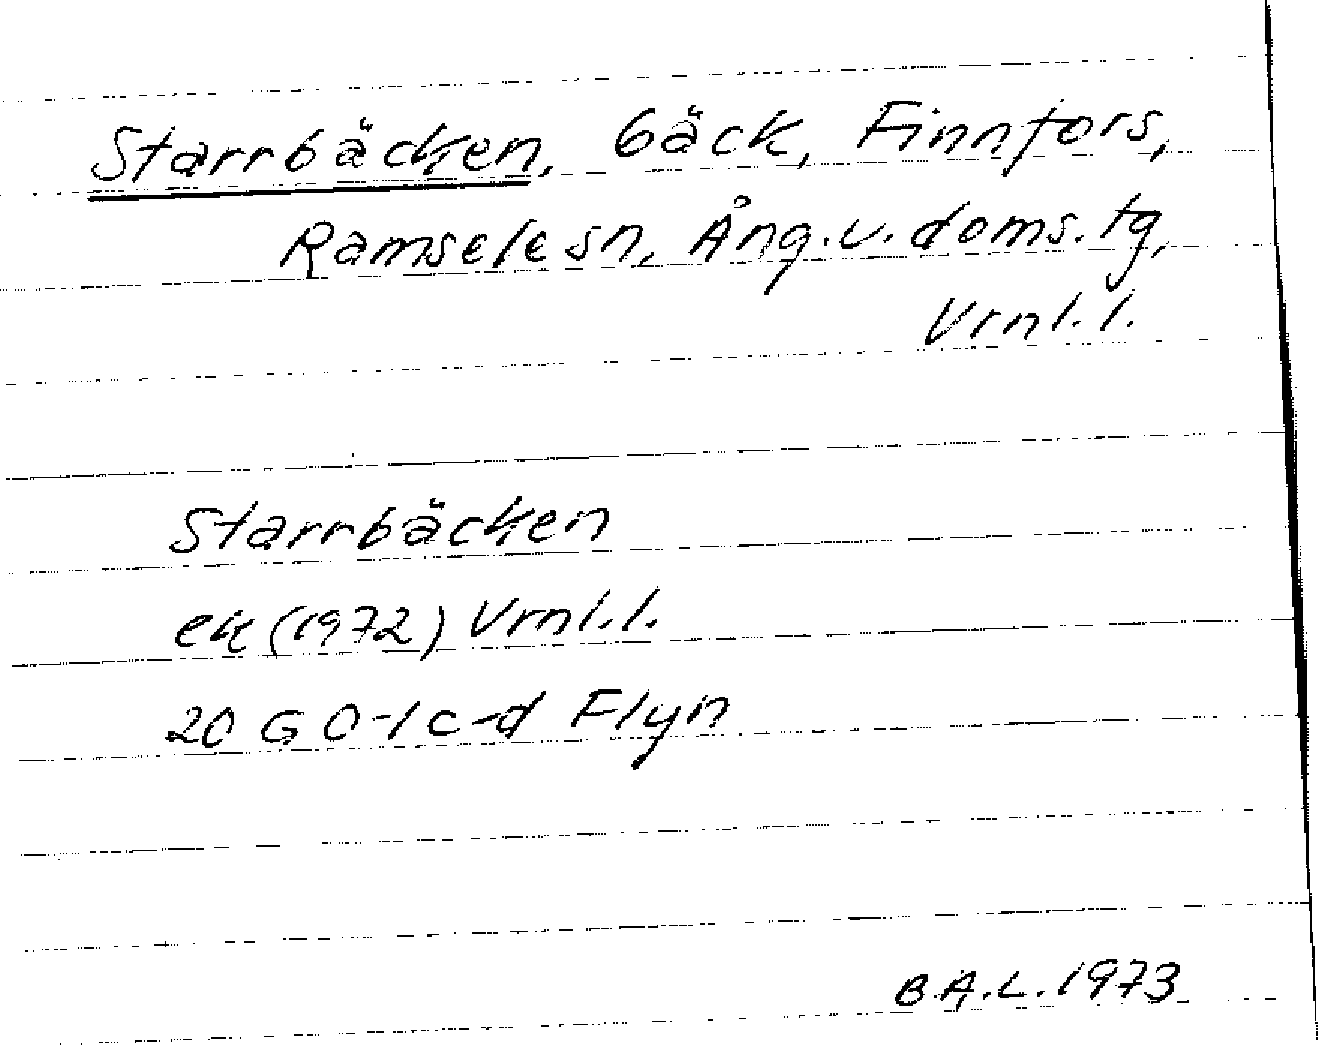 Starrbäcken, bäck, Finnfors,
Ramsele sn, Ång. v. doms. tg,
Vrnl. l.
Starrbäcken
ek (1972) Vrnl. l.
20 G 0-1 c-d Flyn
B.A.L. 1973